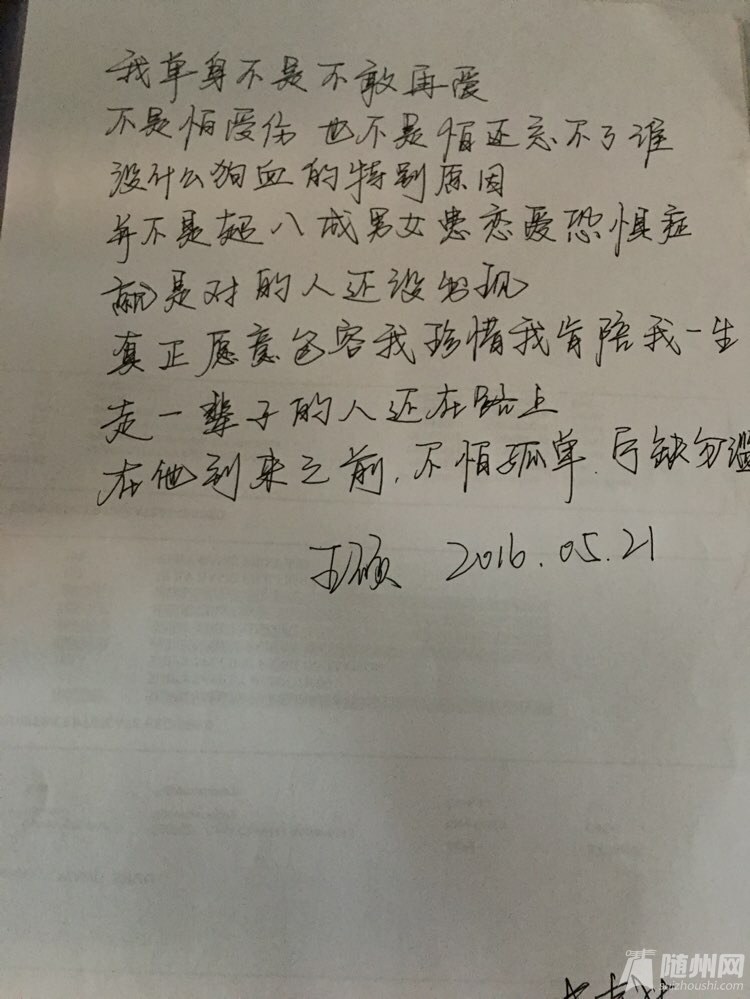 我单身不是不敢再爱
不是怕受伤 也不是怕还忘不了谁
没什么狗血的特别原因
并不是超八成男女患恋爱恐惧症
就是对的人还没出现
真正愿意包容我珍惜我肯陪我一生
走一辈子的人还在路上
在他到来之前,不怕孤单.宁缺勿滥
王硕 2016.05.21
随州网
suizhoushi.com